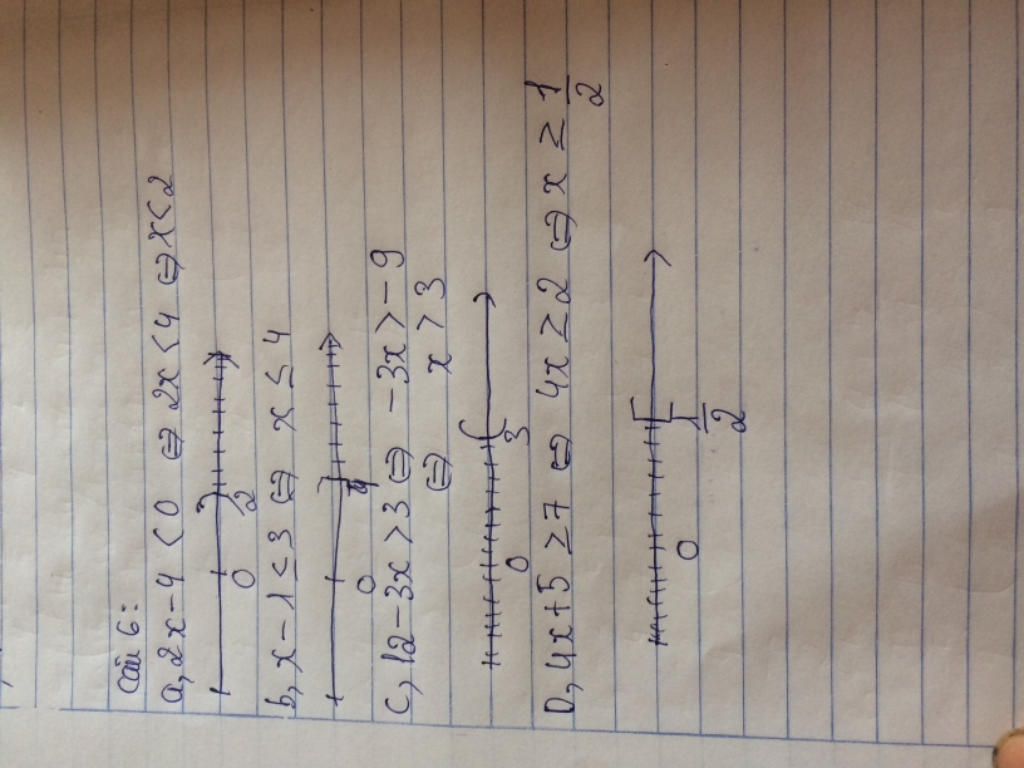 Câu 6:
a, 2x - 4 < 0 ⇔ 2x < 4 ⇔ x < 2
0 2
b, x - 1 ≤ 3 ⇔ x ≤ 4
0 4
C, 12 - 3x > 3 ⇔ -3x > -9
⇔ x > 3
0 3
D, 4x + 5 ≥ 7 ⇔ 4x ≥ 2 ⇔ x ≥ 1/2
0 1/2